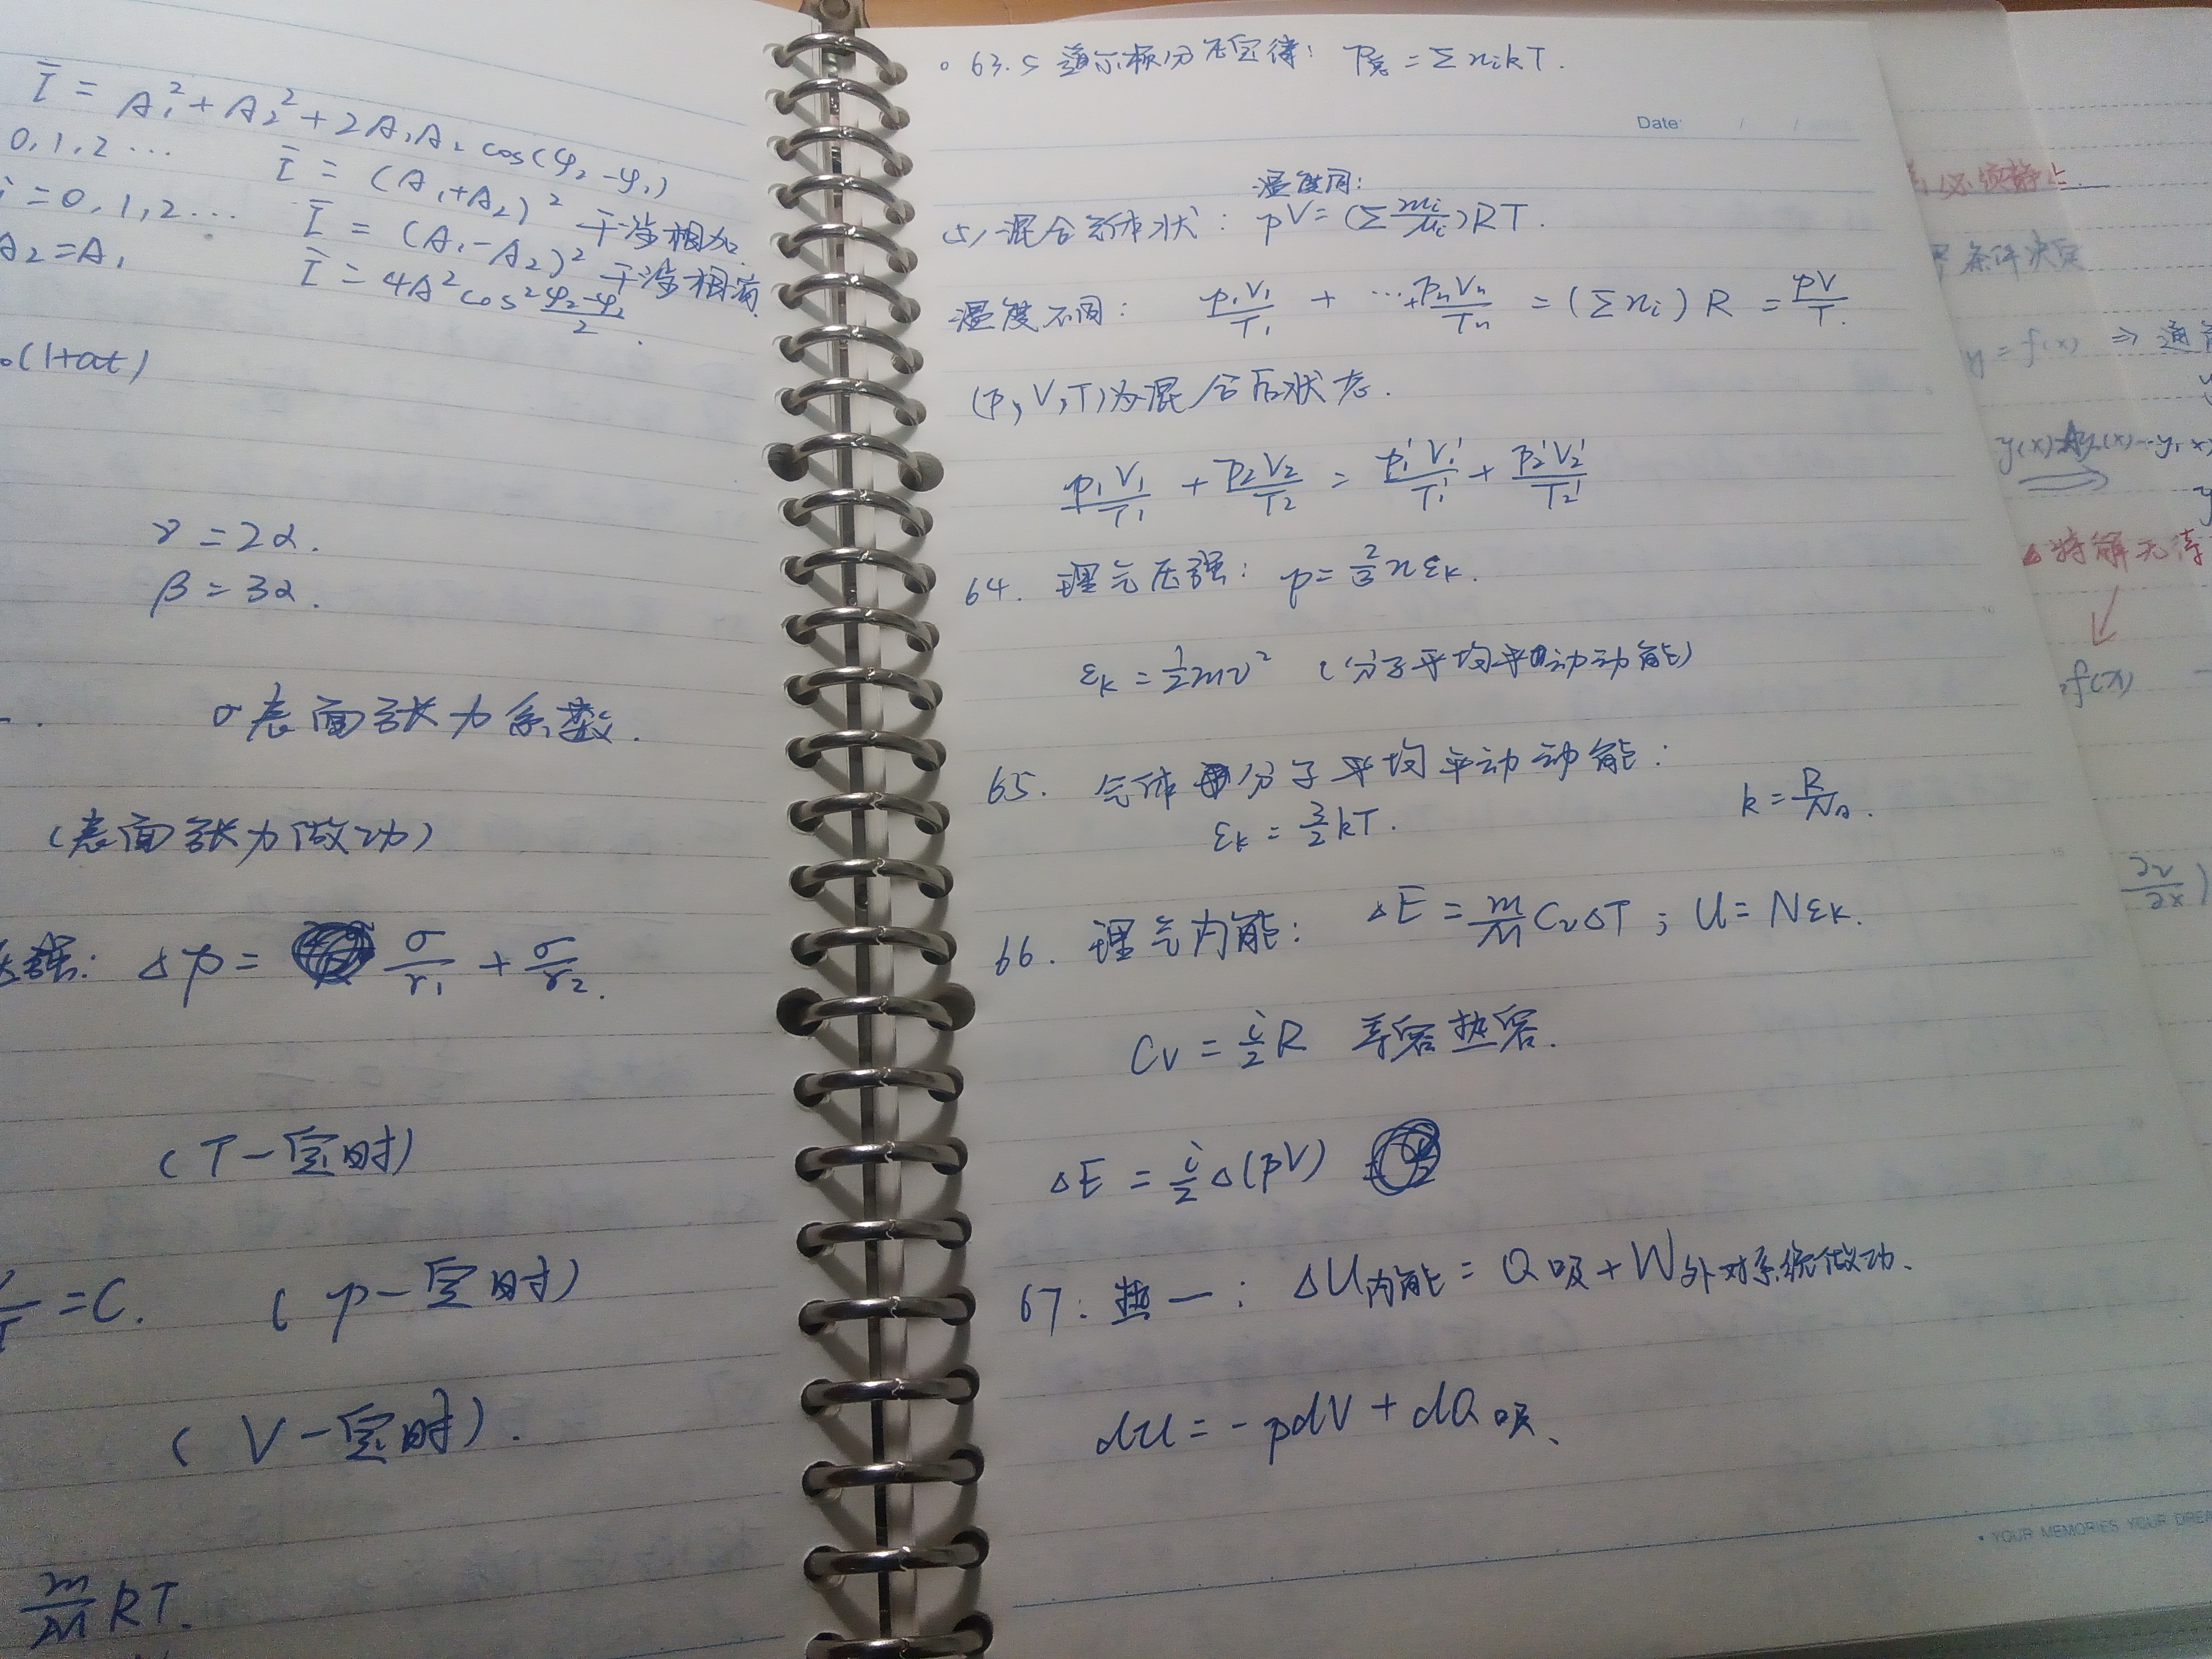 Ī = A₁² + A₂² + 2A₁A₂ cos(φ₂-φ₁)
0,1,2… Ī = (A₁+A₂)² 干涉相加
i=0,1,2… Ī = (A₁-A₂)² 干涉相消
A₂=A₁ Ī = 4A²cos²\frac{φ₂-φ₁}{2}.
(1+αt)
γ=2α.
β=3α.
σ表面张力系数.
(表面张力做功)
压强: Δp = \frac{σ}{r₁} + \frac{σ}{r₂}.
(T一定时)
=C. (p一定时)
(V一定时).
\frac{m}{M}RT.
63.5 道尔顿分压定律: P总 = Σnᵢ kT.
Date: / /
温度同:
(5) 混合气体状: pV=(Σ\frac{mᵢ}{μᵢ})RT.
温度不同: \frac{p₁V₁}{T₁} + …+\frac{pₙVₙ}{Tₙ} = (Σnᵢ) R = \frac{pV}{T}.
(p,V,T)为混合后状态.
\frac{p₁V₁}{T₁} + \frac{p₂V₂}{T₂} = \frac{p₁'V₁'}{T₁'} + \frac{p₂'V₂'}{T₂'}
64. 理气压强: p=\frac{2}{3}nεₖ.
εₖ=\frac{1}{2}mv² (分子平均平动动能)
65. 气体分子平均平动动能:
εₖ=\frac{3}{2}kT. k=\frac{R}{N_A}.
66. 理气内能: ΔE=\frac{m}{M}CᵥΔT; U=Nεₖ.
Cᵥ=\frac{i}{2}R 等容热容.
ΔE=\frac{i}{2}Δ(pV)
67. 热一: ΔU内能 = Q吸+W外对系统做功.
dU=-pdV+dQ吸.
• YOUR MEMORIES YOUR
必须静止.
条件决定
y=f(x) ⇒ 通
特解无
f(x)
\frac{∂v}{∂x})